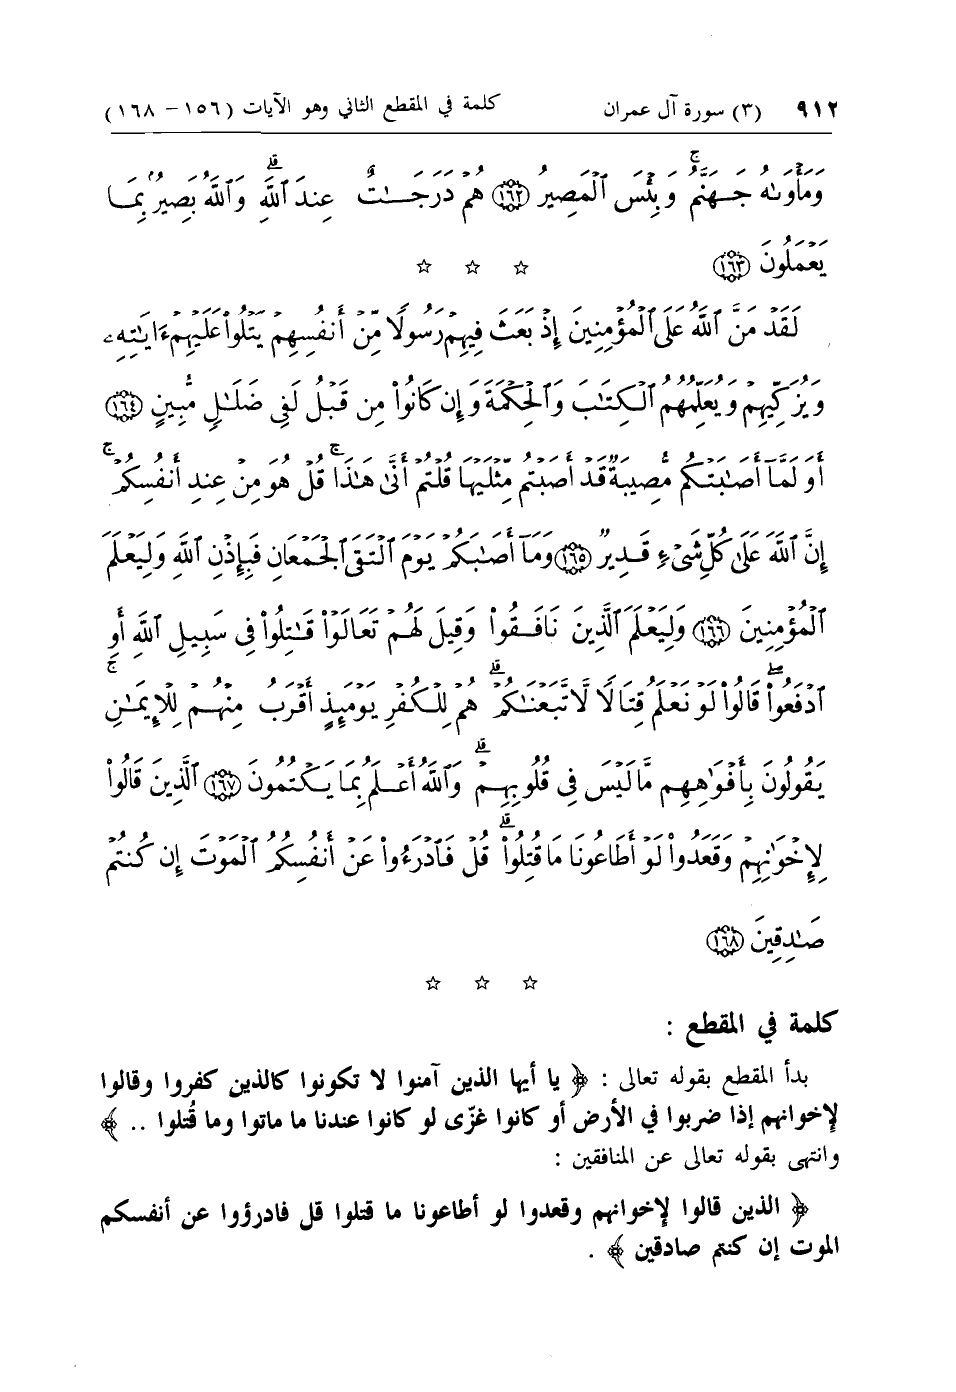 ٩١٢ (٣) سورة آل عمران كلمة في المقطع الثاني وهو الآيات (١٥٦ – ١٦٨)
وَمَأْوَىٰهُ جَهَنَّمُ ۚ وَبِئْسَ ٱلْمَصِيرُ ﴿١٦٢﴾ هُمْ دَرَجَـٰتٌ عِندَ ٱللَّهِ ۗ وَٱللَّهُ بَصِيرُۢ بِمَا
يَعْمَلُونَ ﴿١٦٣﴾
☆ ☆ ☆
لَقَدْ مَنَّ ٱللَّهُ عَلَى ٱلْمُؤْمِنِينَ إِذْ بَعَثَ فِيهِمْ رَسُولًا مِّنْ أَنفُسِهِمْ يَتْلُوا۟ عَلَيْهِمْ ءَايَـٰتِهِۦ
وَيُزَكِّيهِمْ وَيُعَلِّمُهُمُ ٱلْكِتَـٰبَ وَٱلْحِكْمَةَ وَإِن كَانُوا۟ مِن قَبْلُ لَفِى ضَلَـٰلٍ مُّبِينٍ ﴿١٦٤﴾
أَوَلَمَّآ أَصَـٰبَتْكُم مُّصِيبَةٌ قَدْ أَصَبْتُم مِّثْلَيْهَا قُلْتُمْ أَنَّىٰ هَـٰذَا ۖ قُلْ هُوَ مِنْ عِندِ أَنفُسِكُمْ ۗ
إِنَّ ٱللَّهَ عَلَىٰ كُلِّ شَىْءٍ قَدِيرٌ ﴿١٦٥﴾ وَمَآ أَصَـٰبَكُمْ يَوْمَ ٱلْتَقَى ٱلْجَمْعَانِ فَبِإِذْنِ ٱللَّهِ وَلِيَعْلَمَ
ٱلْمُؤْمِنِينَ ﴿١٦٦﴾ وَلِيَعْلَمَ ٱلَّذِينَ نَافَقُوا۟ وَقِيلَ لَهُمْ تَعَالَوْا۟ قَـٰتِلُوا۟ فِى سَبِيلِ ٱللَّهِ أَوِ
ٱدْفَعُوا۟ ۖ قَالُوا۟ لَوْ نَعْلَمُ قِتَالًا لَّٱتَّبَعْنَـٰكُمْ ۗ هُمْ لِلْكُفْرِ يَوْمَئِذٍ أَقْرَبُ مِنْهُمْ لِلْإِيمَـٰنِ ۚ
يَقُولُونَ بِأَفْوَٰهِهِم مَّا لَيْسَ فِى قُلُوبِهِمْ ۗ وَٱللَّهُ أَعْلَمُ بِمَا يَكْتُمُونَ ﴿١٦٧﴾ ٱلَّذِينَ قَالُوا۟
لِإِخْوَٰنِهِمْ وَقَعَدُوا۟ لَوْ أَطَاعُونَا مَا قُتِلُوا۟ ۗ قُلْ فَٱدْرَءُوا۟ عَنْ أَنفُسِكُمُ ٱلْمَوْتَ إِن كُنتُمْ
صَـٰدِقِينَ ﴿١٦٨﴾
☆ ☆ ☆
كلمة في المقطع :
بدأ المقطع بقوله تعالى : ﴿ يا أيها الذين آمنوا لا تكونوا كالذين كفروا وقالوا
لإخوانهم إذا ضربوا في الأرض أو كانوا غزّى لو كانوا عندنا ما ماتوا وما قُتلوا .. ﴾
وانتهى بقوله تعالى عن المنافقين :
﴿ الذين قالوا لإخوانهم وقعدوا لو أطاعونا ما قتلوا قل فادرؤوا عن أنفسكم
الموت إن كنتم صادقين ﴾ .